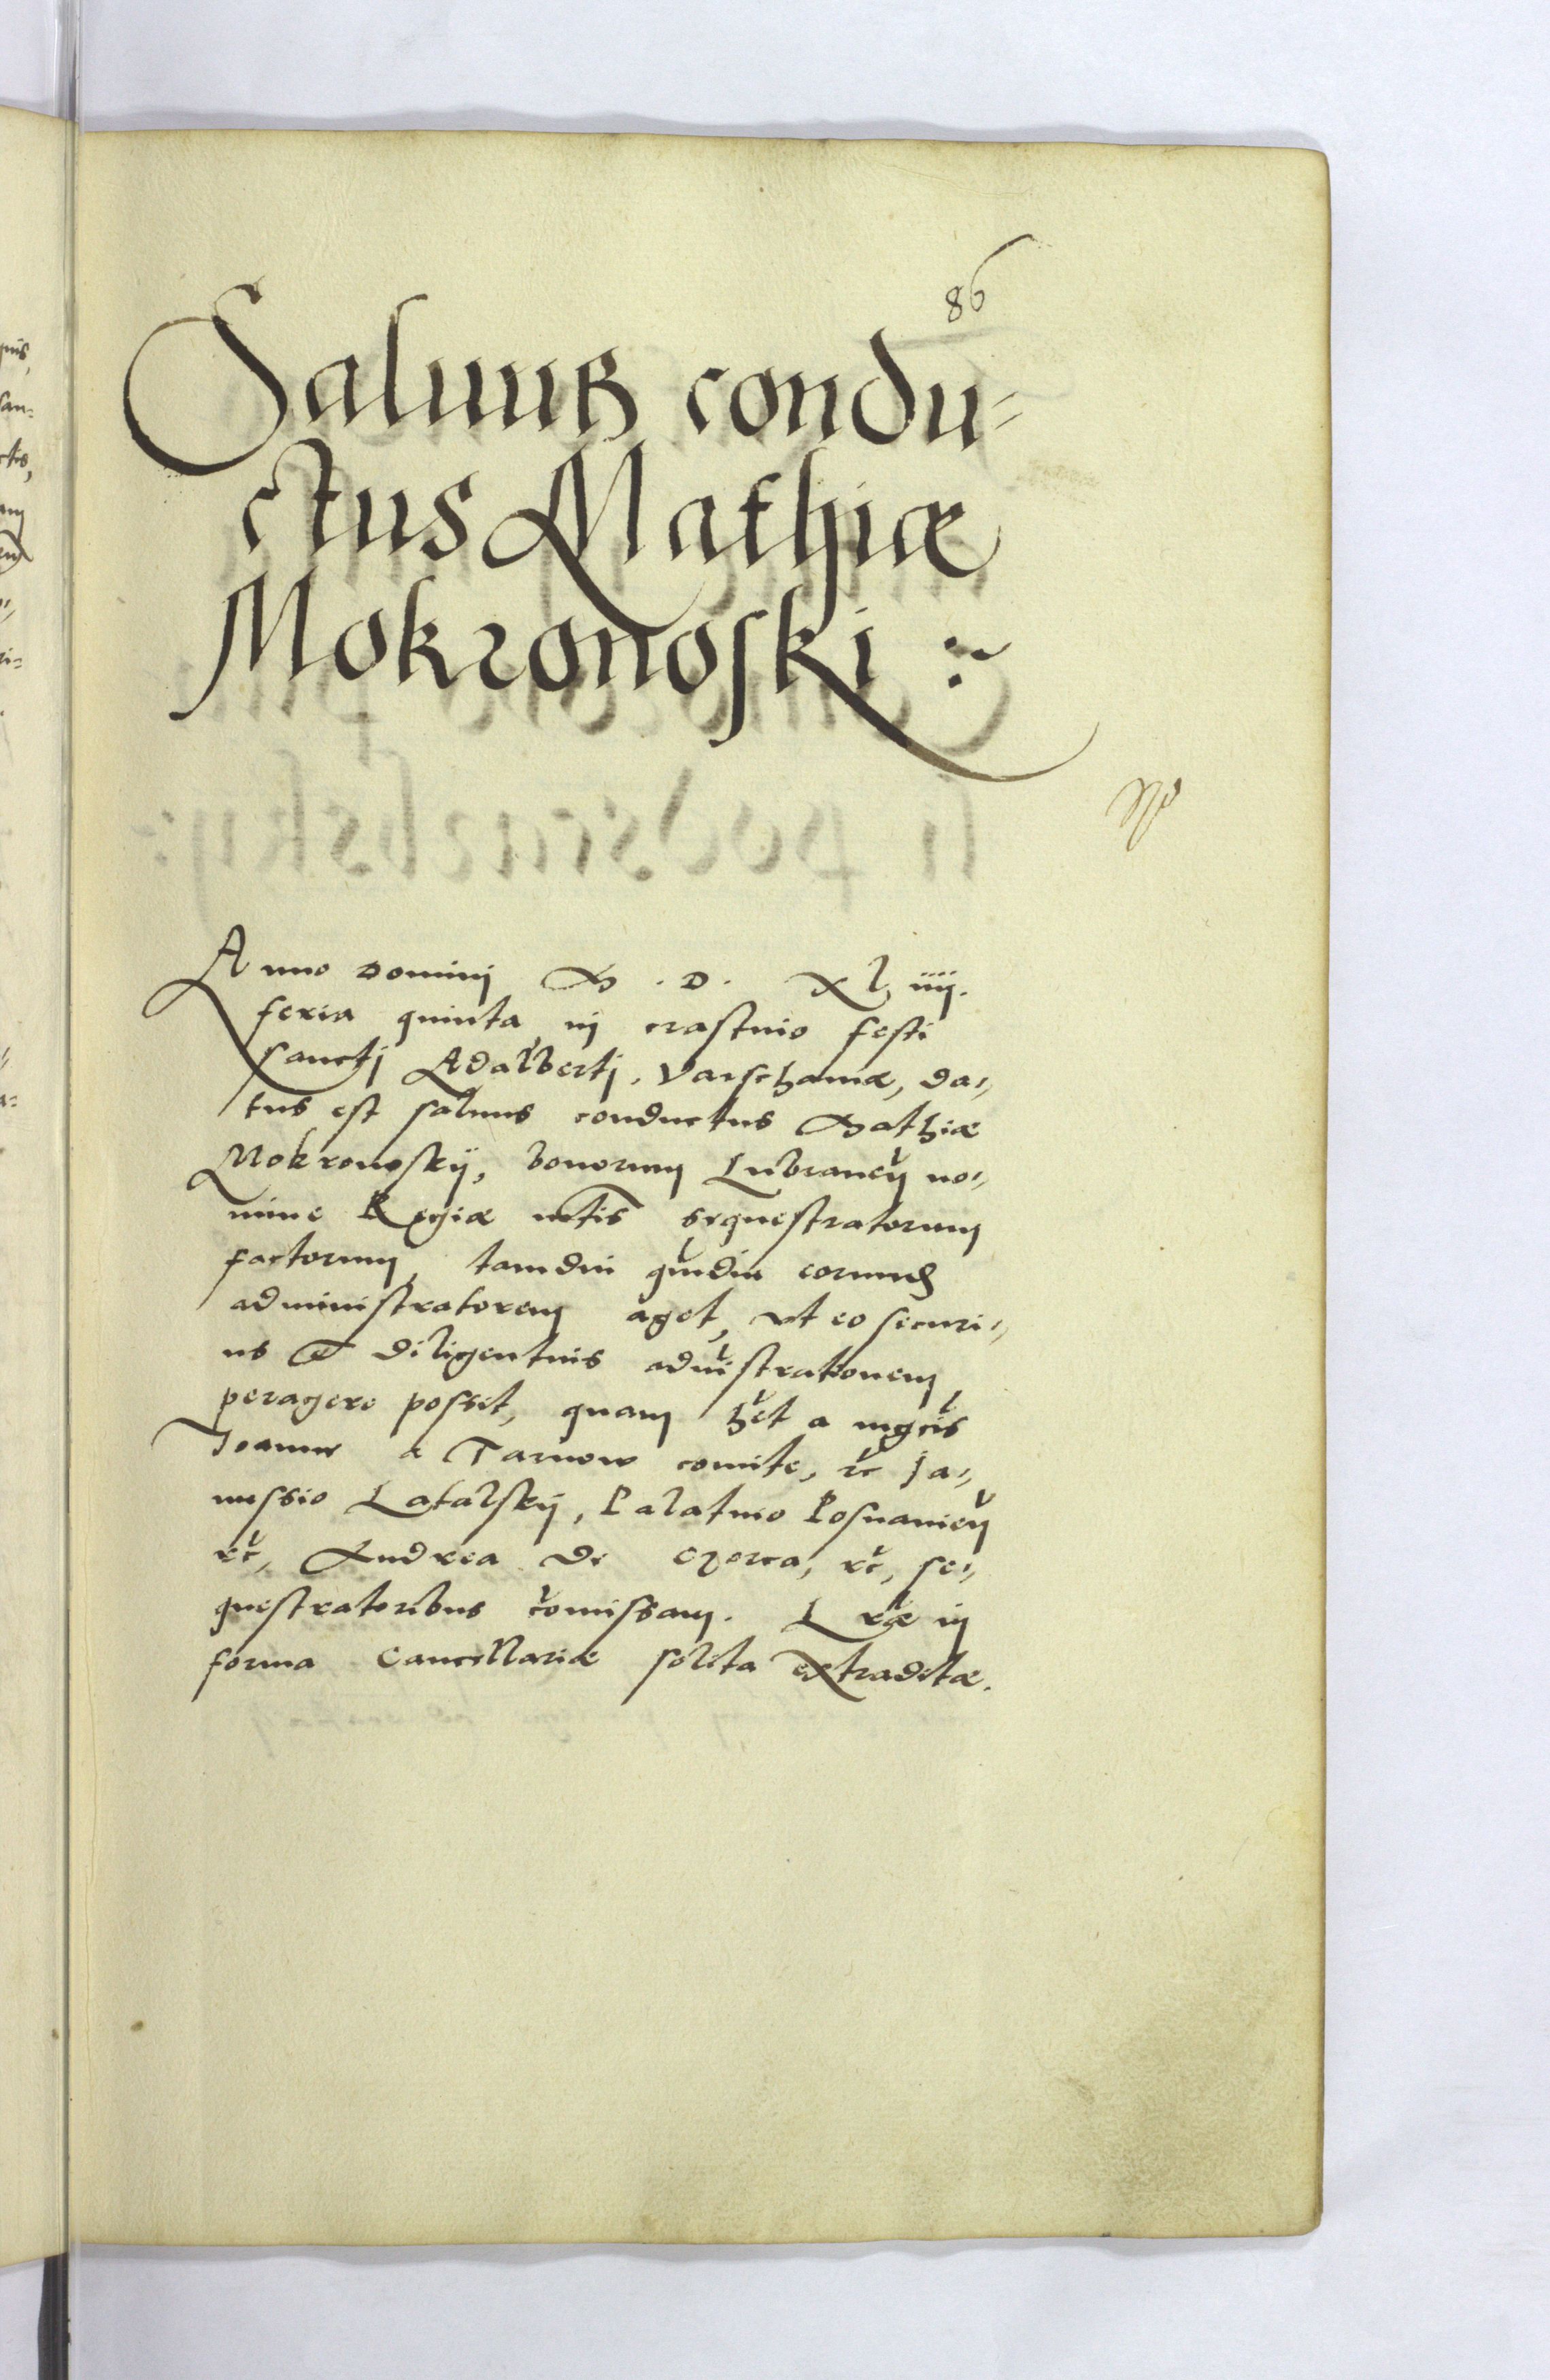 86
Saluus condu=
ctus Mathiæ
Mokronoski :~
Anno Domini M . D . XL iiij.
feria quinta in crastino festi
sancti Adalberti. Varschaniæ, da=
tus est saluus conductus Mathiæ
Mokronoskij, bonorum Lubrancȷ̃ no=
mine Regiæ mtis sequestratorum
factorum, tamdiu qũdiu eorumd
administratorem aget, vt eo securi=
us et diligentius admĩstrationem
peragere possit, quam hẽt a mgcis
Joanne a Tarnow comite, rc̃ Ja=
nussio Latalskij, Palatino Posnanien̄
rc̃, Andrea De Czorca, rc̃, se=
questratoribus cõmissam. Lræ in
forma Cancellariæ solita extraditæ.